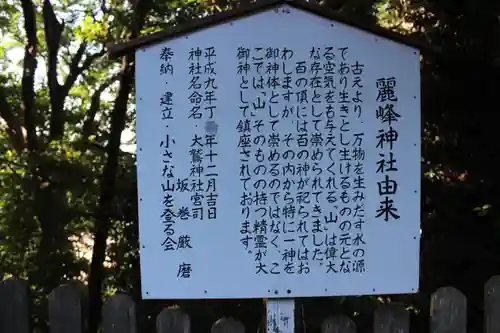 麗峰神社由来
古えより、万物を生みだす水の源
であり生きとし生けるものの元とな
る空気をも与えてくれる「山」は偉大
な存在として崇められてきました。
百の頂には百の神が祀られてはお
わしますが、その内から特に一神を
御神体として崇めるのではなく、こ
こでは、「山」そのものの持つ精霊が大
御神として鎮座されております。
平成九年丁丑年十二月吉日
神社名命名・大鷲神社宮司
坂巻厳磨
奉納・建立・小さな山を登る会